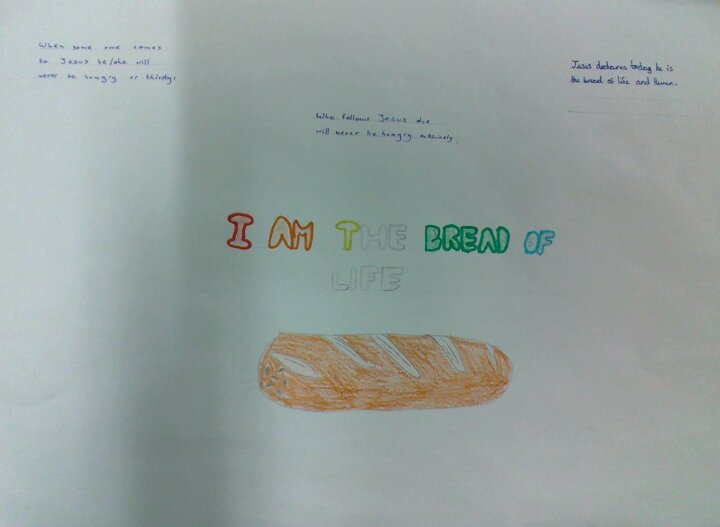 When some one comes
to Jesus he/she will
never be hungry or thirsty.
Jesus declares today he is
the bread of life and Heaven.
Who follows Jesus
will never be hungry
I AM THE BREAD OF
LIFE